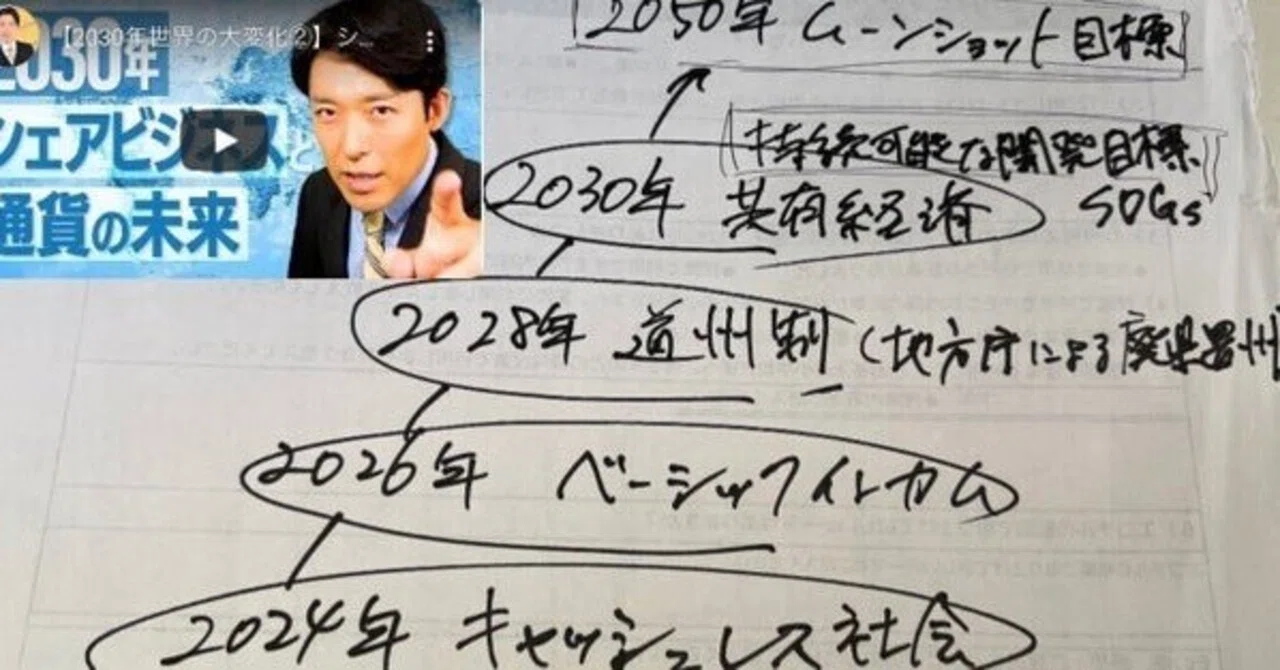 【2030年世界の大変化②】シ...
2030年
シェアビジネスと
通貨の未来
2050年 ムーンショット目標
持続可能な開発目標
SDGs
2030年 共有経済
2028年 道州制 (地方庁による廃県置州
2026年 ベーシックインカム
2024年 キャッシュレス社会